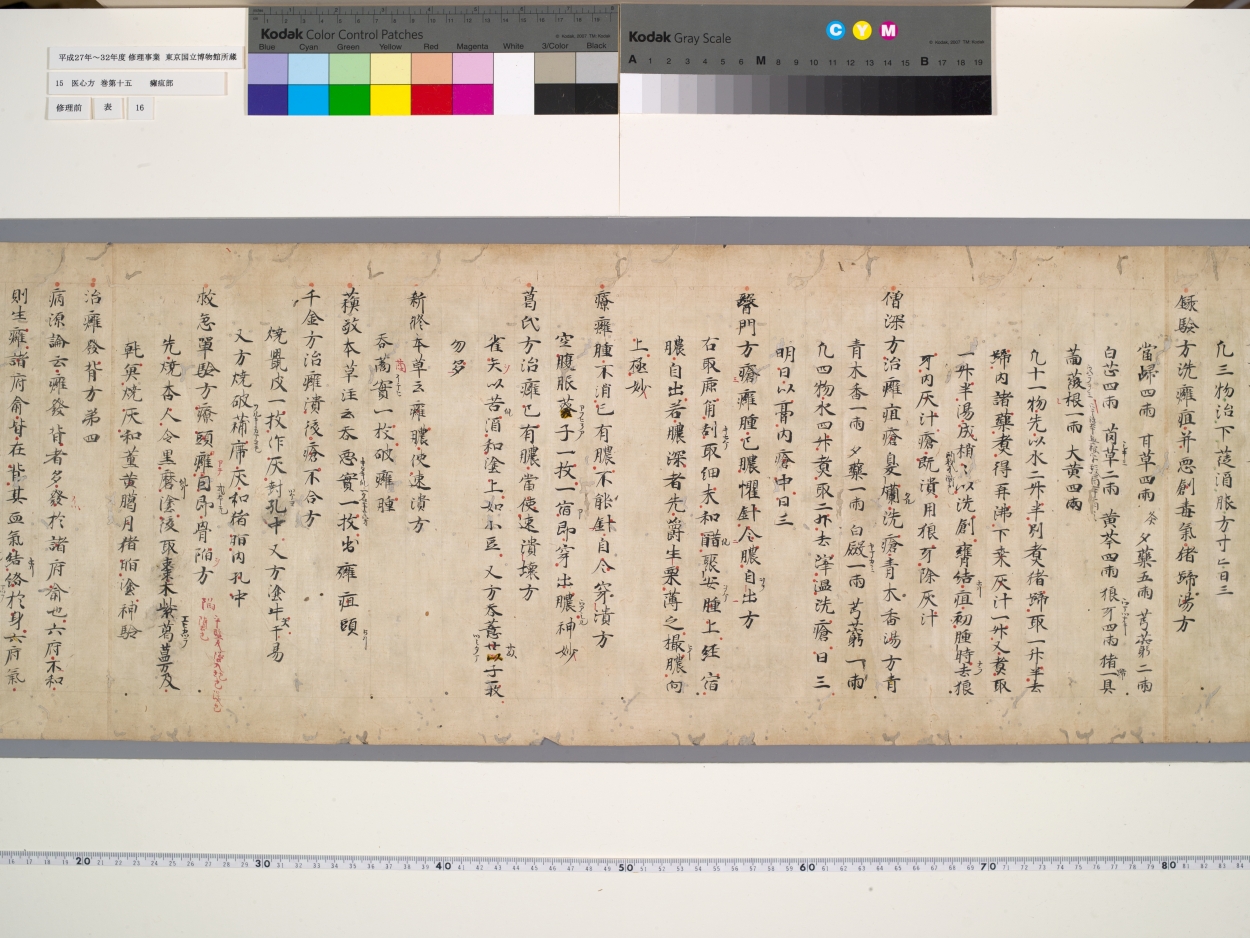 平成27年～32年度 修理事業 東京国立博物館所蔵
15 医心方 巻第十五 癰疽部
修理前 表 16
Kodak Color Control Patches
Blue Cyan Green Yellow Red Magenta White 3/Color Black
Kodak Gray Scale
C Y M
A 1 2 3 4 5 6 M 8 9 10 11 12 13 14 15 B 17 18 19
凡三物治下篩酒服方寸匕日三
録驗方洗癰疽并惡創毒氣猪蹄湯方
當歸四兩 甘草四兩 夕藥五兩 芎藭二兩
白芷四兩 茵草二兩 黄芩四兩 狼牙四兩 猪蹄一具
薔薇根一兩 大黄四兩
凡十一物先以水二升半別煮猪蹄取一升半去
蹄内諸藥煮得再沸下来灰汁一升又煮取
一升半湯成稍々以洗創癰結疽初腫時去狼
牙内灰汁瘡既潰用狼牙除灰汁
僧深方治癰疽瘡臭爛洗瘡青木香湯方青
青木香一兩 夕藥一兩 白蘞一兩 芎藭一兩
凡四物水四升煮取二升去滓温洗瘡日三
明日以膏内瘡中日三
醫門方療癰腫已膿懼針令膿自出方
右取鹿角剉取細末和醋張安腫上經宿
膿自出若膿深者先爵生栗薄之撮膿向
上極妙
療癰腫不消已有膿不能針自令穿潰方
空腹服葵子一枚一宿即穿出膿神妙
葛氏方治癰已有膿當使速潰壊方
雀矢以苦酒和塗上如小豆 又方呑薏苡子一枚
勿多
新脩本草云癰膿使速潰方
呑蒿實一枚破癰腫
蘇敬本草注云呑惡實一枚出癰疽頭
千金方治癰潰後瘡不合方
燒鼠皮一枚作灰封孔中 又方塗牛千易
又方燒破蒲席灰和猪脂内孔中
救急單驗方療頭癰自昂骨陷方
先燒杏人令黒磨塗後取棗木紫葛蒕及
乾臭燒灰和菫黄臈月猪脂塗神驗
治癰發背方第四
病源論云癰發背者多發於諸府俞也六府不和
則生癰諸府俞皆在背其血氣結絡於身六府氣
20 30 40 50 60 70 80